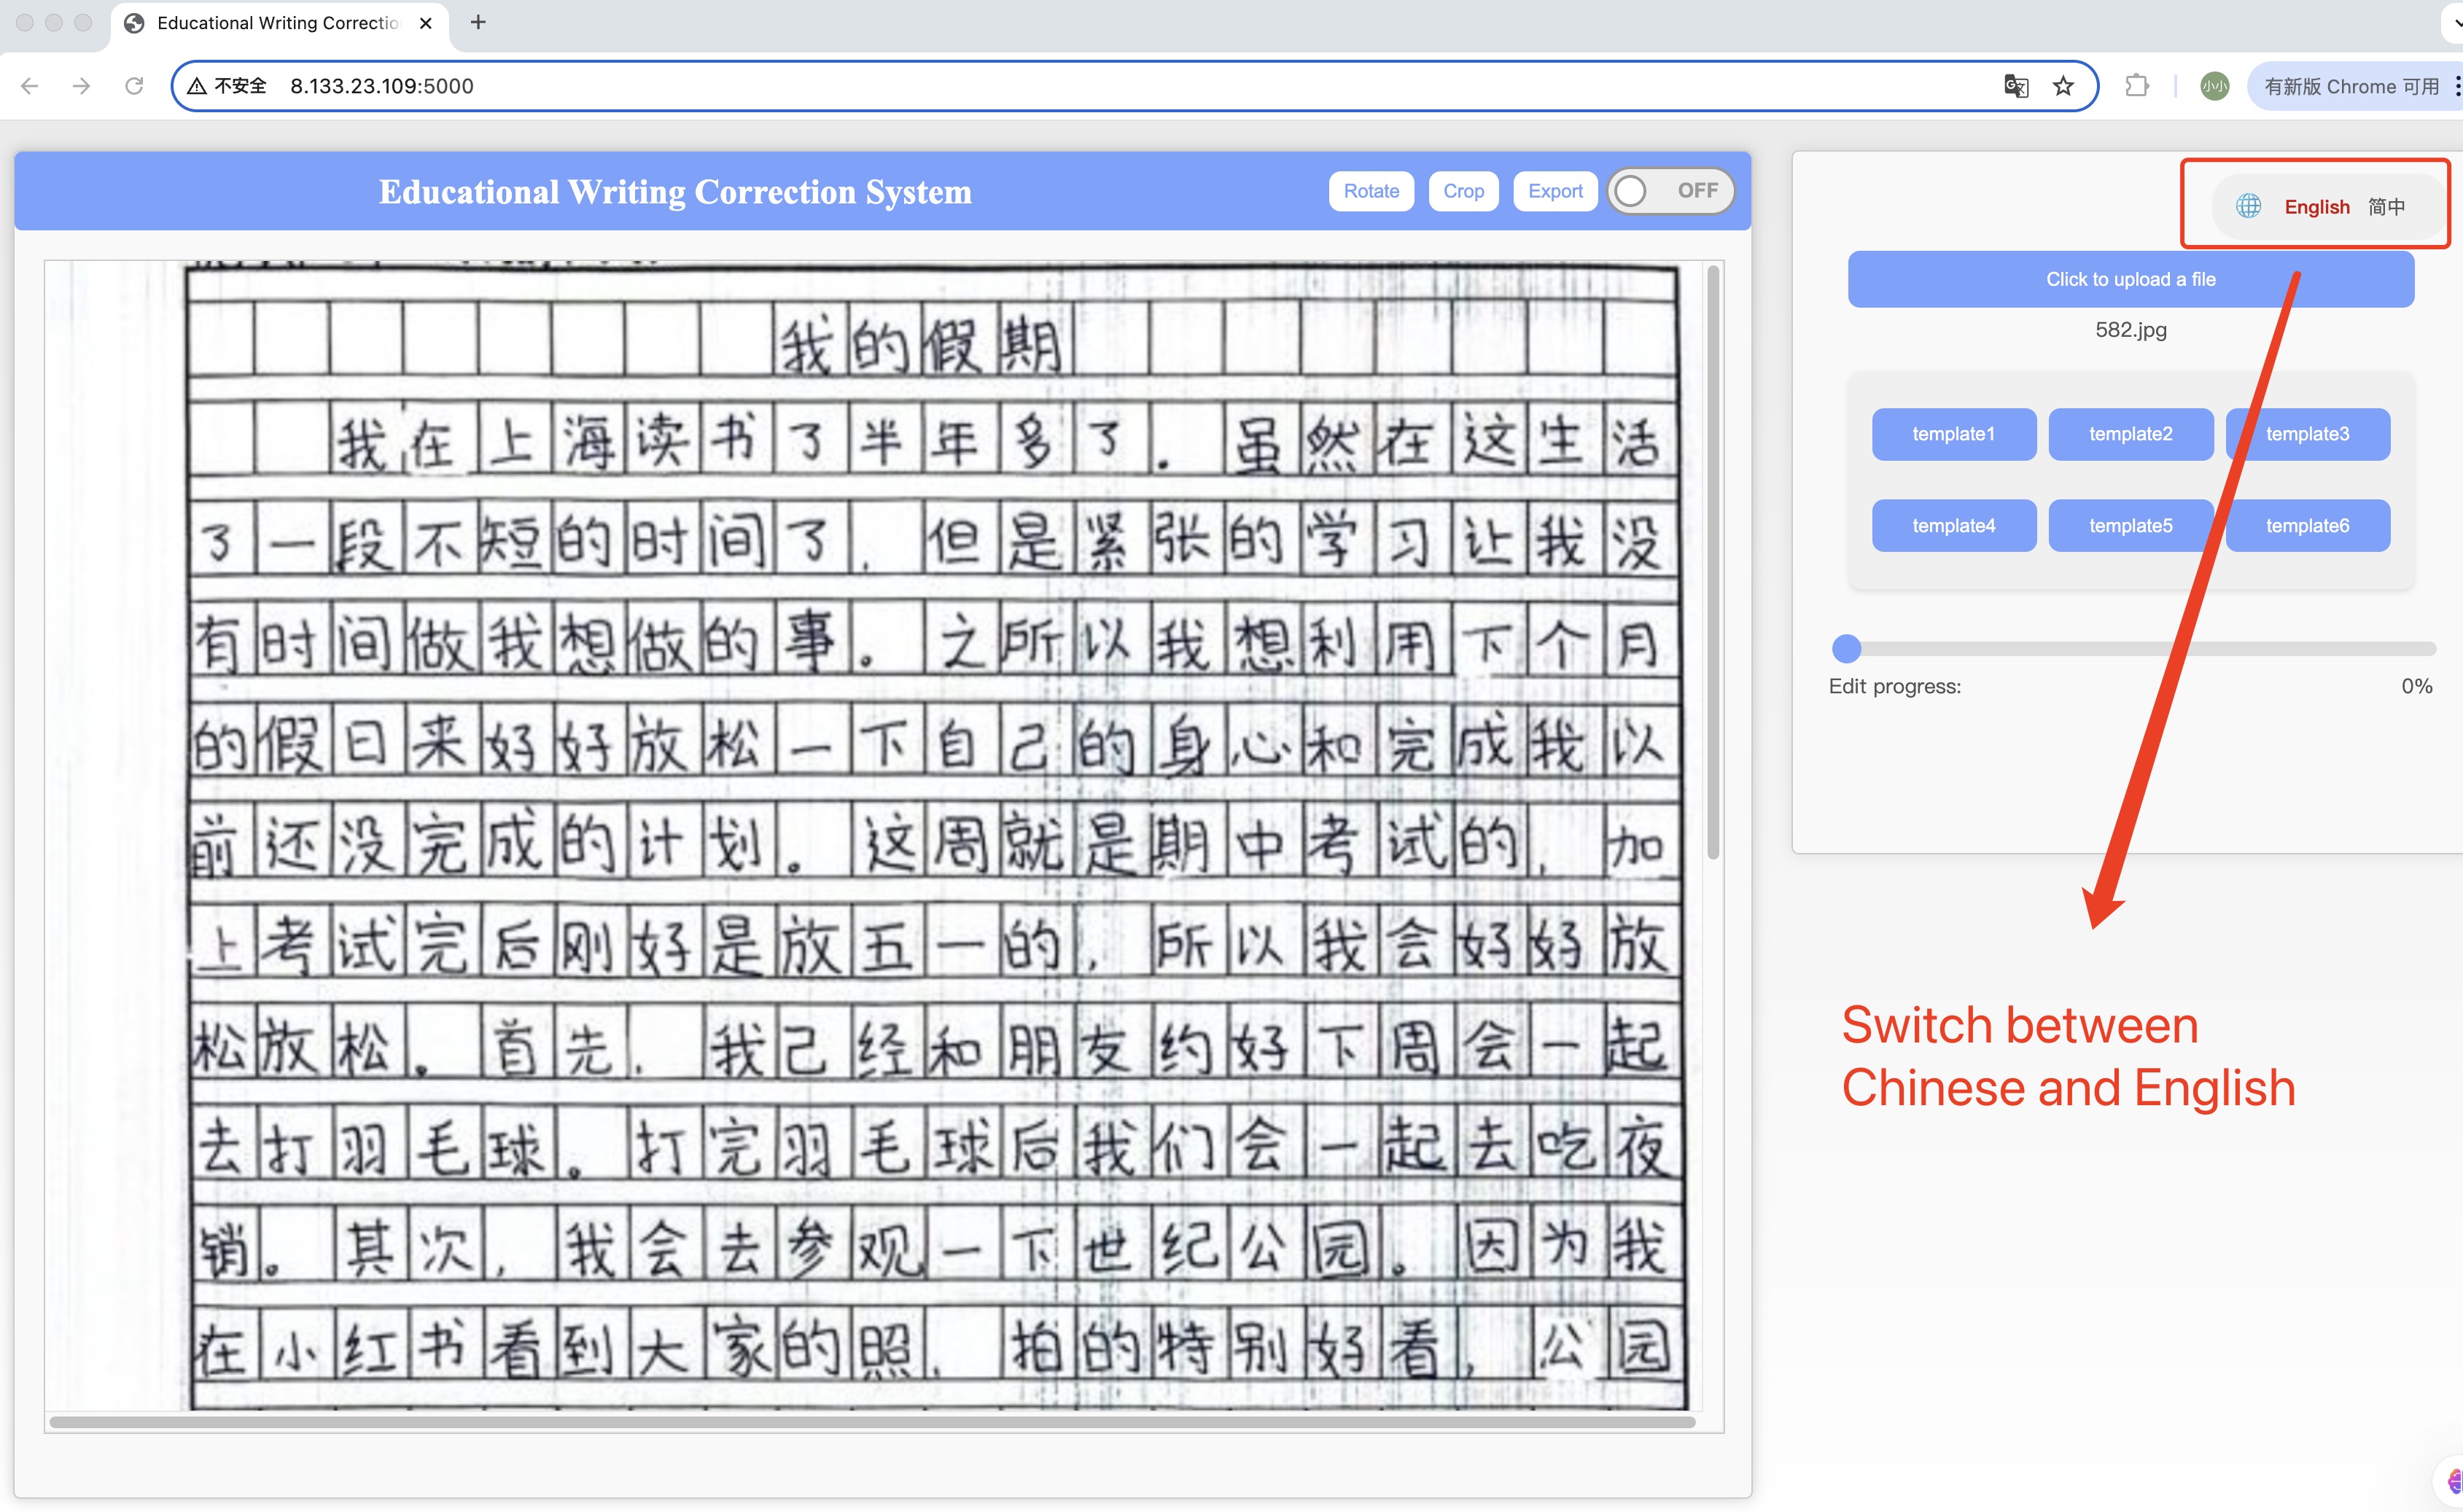 Educational Writing Correctio
不安全 8.133.23.109:5000
小小
有新版 Chrome 可用
Educational Writing Correction System
Rotate Crop Export OFF
我的假期
我在上海读书了半年多了。虽然在这生活
了一段不短的时间了，但是紧张的学习让我没
有时间做我想做的事。之所以我想利用下个月
的假日来好好放松一下自己的身心和完成我以
前还没完成的计划。这周就是期中考试的，加
上考试完后刚好是放五一的，所以我会好好放
松放松。首先，我己经和朋友约好下周会一起
去打羽毛球。打完羽毛球后我们会一起去吃夜
销。其次，我会去参观一下世纪公园。因为我
在小红书看到大家的照，拍的特别好看，公园
English 简中
Click to upload a file
582.jpg
template1 template2 template3
template4 template5 template6
Edit progress: 0%
Switch between
Chinese and English